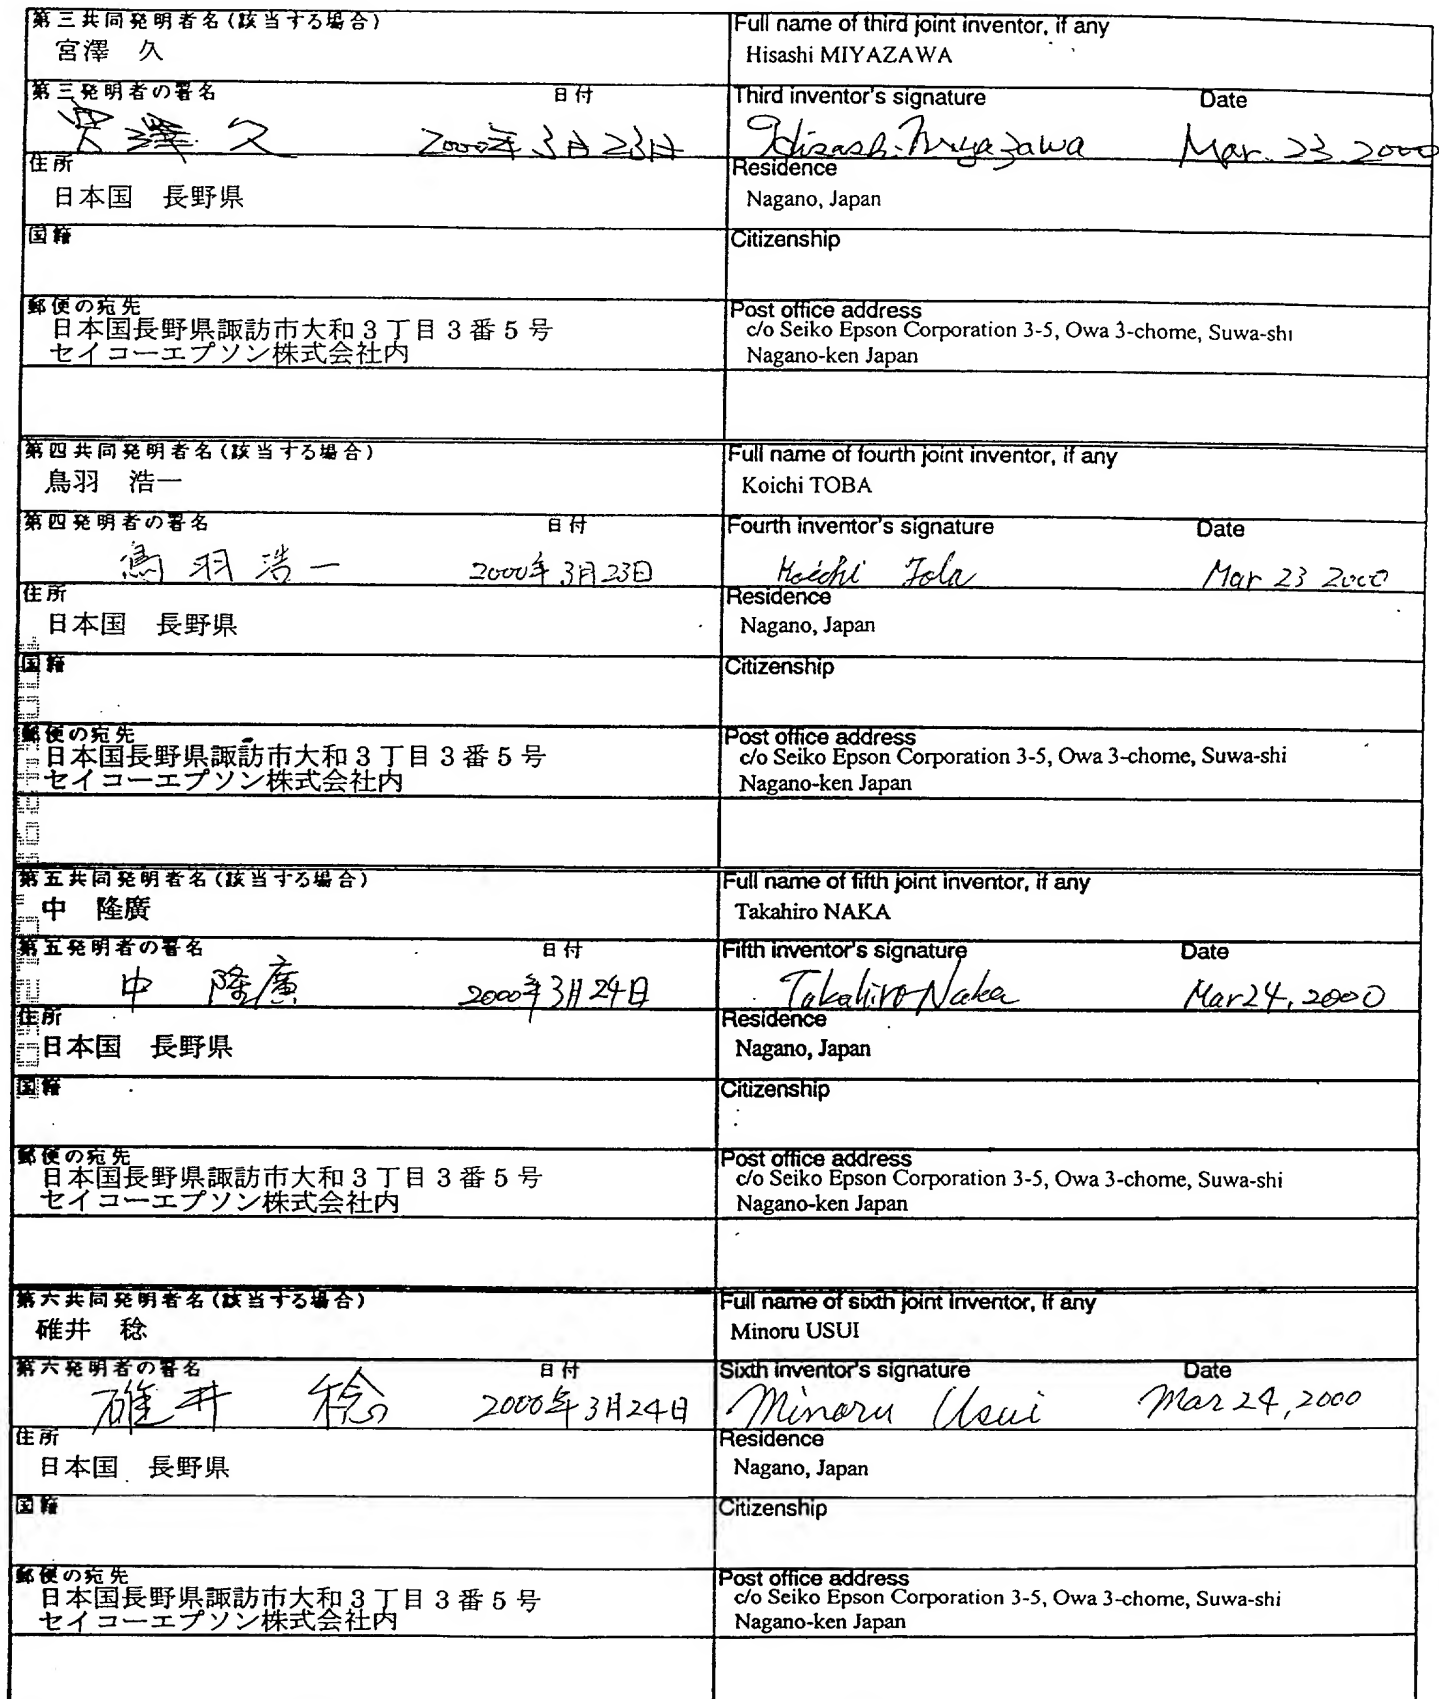 第三共同発明者名(該当する場合)
宮澤 久
Full name of third joint inventor, if any
Hisashi MIYAZAWA
第三発明者の署名 日付
宮澤 久 2000年3月23日
Third inventor's signature Date
Hisashi Miyazawa Mar. 23. 2000
住所
日本国 長野県
Residence
Nagano, Japan
国籍
Citizenship
郵便の宛先
日本国長野県諏訪市大和3丁目3番5号
セイコーエプソン株式会社内
Post office address
c/o Seiko Epson Corporation 3-5, Owa 3-chome, Suwa-shi
Nagano-ken Japan
第四共同発明者名(該当する場合)
鳥羽 浩一
Full name of fourth joint inventor, if any
Koichi TOBA
第四発明者の署名 日付
鳥羽 浩一 2000年3月23日
Fourth inventor's signature Date
Koichi Toba Mar 23 2000
住所
日本国 長野県
Residence
Nagano, Japan
国籍
Citizenship
郵便の宛先
日本国長野県諏訪市大和3丁目3番5号
セイコーエプソン株式会社内
Post office address
c/o Seiko Epson Corporation 3-5, Owa 3-chome, Suwa-shi
Nagano-ken Japan
第五共同発明者名(該当する場合)
中 隆廣
Full name of fifth joint inventor, if any
Takahiro NAKA
第五発明者の署名 日付
中 隆廣 2000年3月24日
Fifth inventor's signature Date
Takahiro Naka Mar 24, 2000
住所
日本国 長野県
Residence
Nagano, Japan
国籍
Citizenship
郵便の宛先
日本国長野県諏訪市大和3丁目3番5号
セイコーエプソン株式会社内
Post office address
c/o Seiko Epson Corporation 3-5, Owa 3-chome, Suwa-shi
Nagano-ken Japan
第六共同発明者名(該当する場合)
碓井 稔
Full name of sixth joint inventor, if any
Minoru USUI
第六発明者の署名 日付
碓井 稔 2000年3月24日
Sixth inventor's signature Date
Minoru Usui Mar 24, 2000
住所
日本国 長野県
Residence
Nagano, Japan
国籍
Citizenship
郵便の宛先
日本国長野県諏訪市大和3丁目3番5号
セイコーエプソン株式会社内
Post office address
c/o Seiko Epson Corporation 3-5, Owa 3-chome, Suwa-shi
Nagano-ken Japan